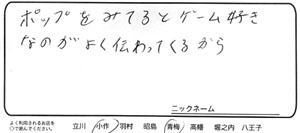 ポップをみてるとゲーム好き
なのがよく伝わってくるから
ニックネーム
よく利用されるお店を
○で囲んでください。 立川 小作 羽村 昭島 青梅 高幡 堀之内 八王子